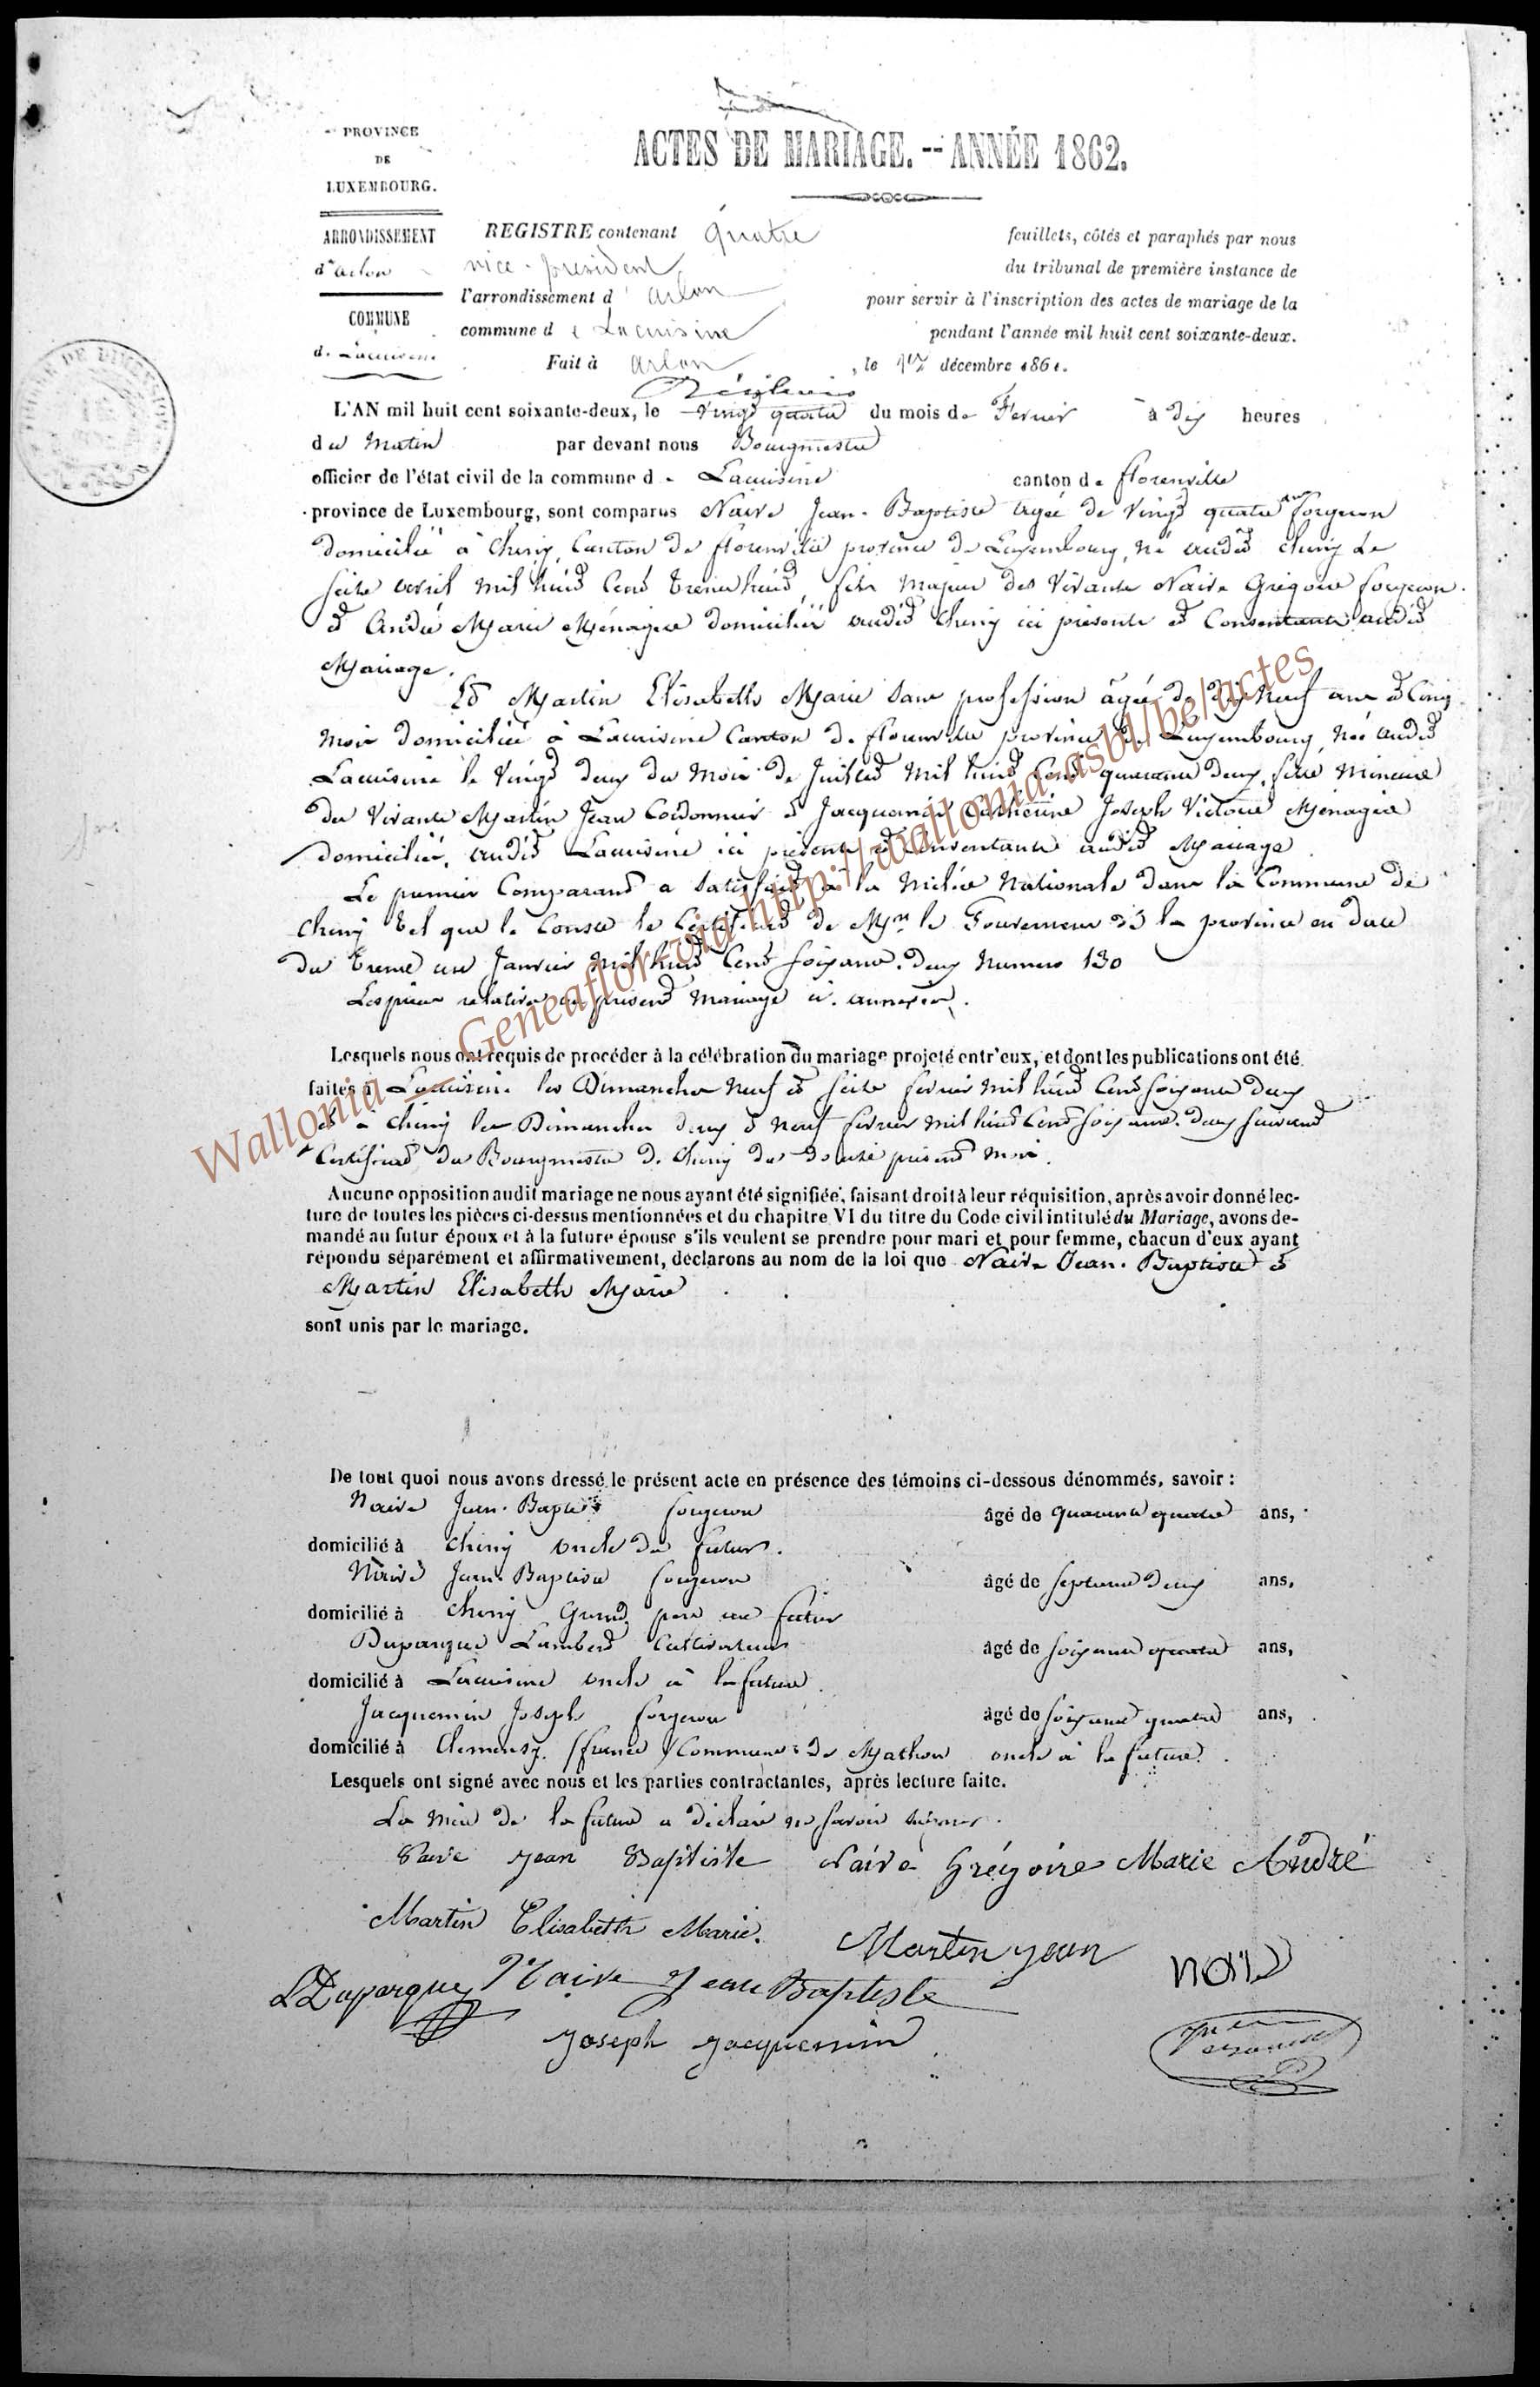 PROVINCE
DE
LUXEMBOURG.
ACTES DE MARIAGE. -- ANNÉE 1862.
ARRONDISSEMENT
d'arlon
COMMUNE
de Lacuisine
REGISTRE contenant quatre feuillets, côtés et paraphés par nous
vice-président du tribunal de première instance de
l'arrondissement d'arlon pour servir à l'inscription des actes de mariage de la
commune de Lacuisine pendant l'année mil huit cent soixante-deux.
Fait à arlon, le décembre 1861.
L'AN mil huit cent soixante-deux, le vingt quatre du mois de Fevrier à dix heures
du Matin par devant nous Bourgmestre
officier de l'état civil de la commune de Lacuisine canton de florenville
province de Luxembourg, sont comparus Naive Jean-Baptiste agée de vingt quatre ans forgeron
domicilié à Chiny, Canton de florenville province de Luxembourg, né audit Chiny le
seite avril mil huit cent trente huit, fils majeur des vivants Naive Grégoire forgeron
et André Marie Ménagère domicilié audit Chiny ici présents et Consentants audit
Mariage.
Et Martin Elisabeth Marie sans profession âgée de dix neuf ans et Cinq
mois domiciliée à Lacuisine Canton de florenville province de Luxembourg, née audit
Lacuisine le vingt deux du mois de Juillet mil huit cent quarante deux, fille mineure
des vivants Martin Jean Cordonnier et Jacquemin Catherine Joseph Victoire Ménagère
domicilié, audit Lacuisine ici présents et Consentants audit Mariage
Le premier Comparant a satisfait à la milice Nationale dans la Commune de
Chiny tel que le Conste le Certificat de Mr. le Gouverneur de la province en date
du trente un Janvier mil huit Cent soixante-deux numero 130
Les pieces relatives au présent mariage ci-annexées.
Lesquels nous ont requis de procéder à la célébration du mariage projeté entr'eux, et dont les publications ont été
faites à Lacuisine les Dimanches neuf et seite fevrier mil huit Cent soixante deux
et à Chiny les Dimanches deux et neuf fevrier mil huit Cent soixante-deux suivant
Certificat du Bourgmestre de Chiny du douze présent mois.
Aucune opposition audit mariage ne nous ayant été signifiée, faisant droit à leur réquisition, après avoir donné lec-
ture de toutes les pièces ci-dessus mentionnées et du chapitre VI du titre du Code civil intitulé du Mariage, avons de-
mandé au futur époux et à la future épouse s'ils veulent se prendre pour mari et pour femme, chacun d'eux ayant
répondu séparément et affirmativement, déclarons au nom de la loi que Naive Jean-Baptiste et
Martin Elisabeth Marie
sont unis par le mariage.
De tout quoi nous avons dressé le présent acte en présence des témoins ci-dessous dénommés, savoir :
Naive Jean-Baptiste forgeron âgé de quarante quatre ans,
domicilié à Chiny oncle du futur.
Naive Jean-Baptiste forgeron âgé de septante deux ans,
domicilié à Chiny Grand père au futur
Duparque Lambert Cultivateur âgé de soixante quatre ans,
domicilié à Lacuisine oncle à la future.
Jacquemin Joseph forgeron âgé de soixante quatre ans,
domicilié à Clemensy (france) Commune de Mathon oncle à la future.
Lesquels ont signé avec nous et les parties contractantes, après lecture faite.
La mère de la future a déclaré ne savoir signer.
Naive Jean Baptiste Naive Grégoire Marie André
Martin Elisabeth Marie. Martin Jean
LDuparque Naive Jean Baptiste
Joseph Jacquemin
Wallonia - Geneaflor-via http://wallonia-asbl/be/actes